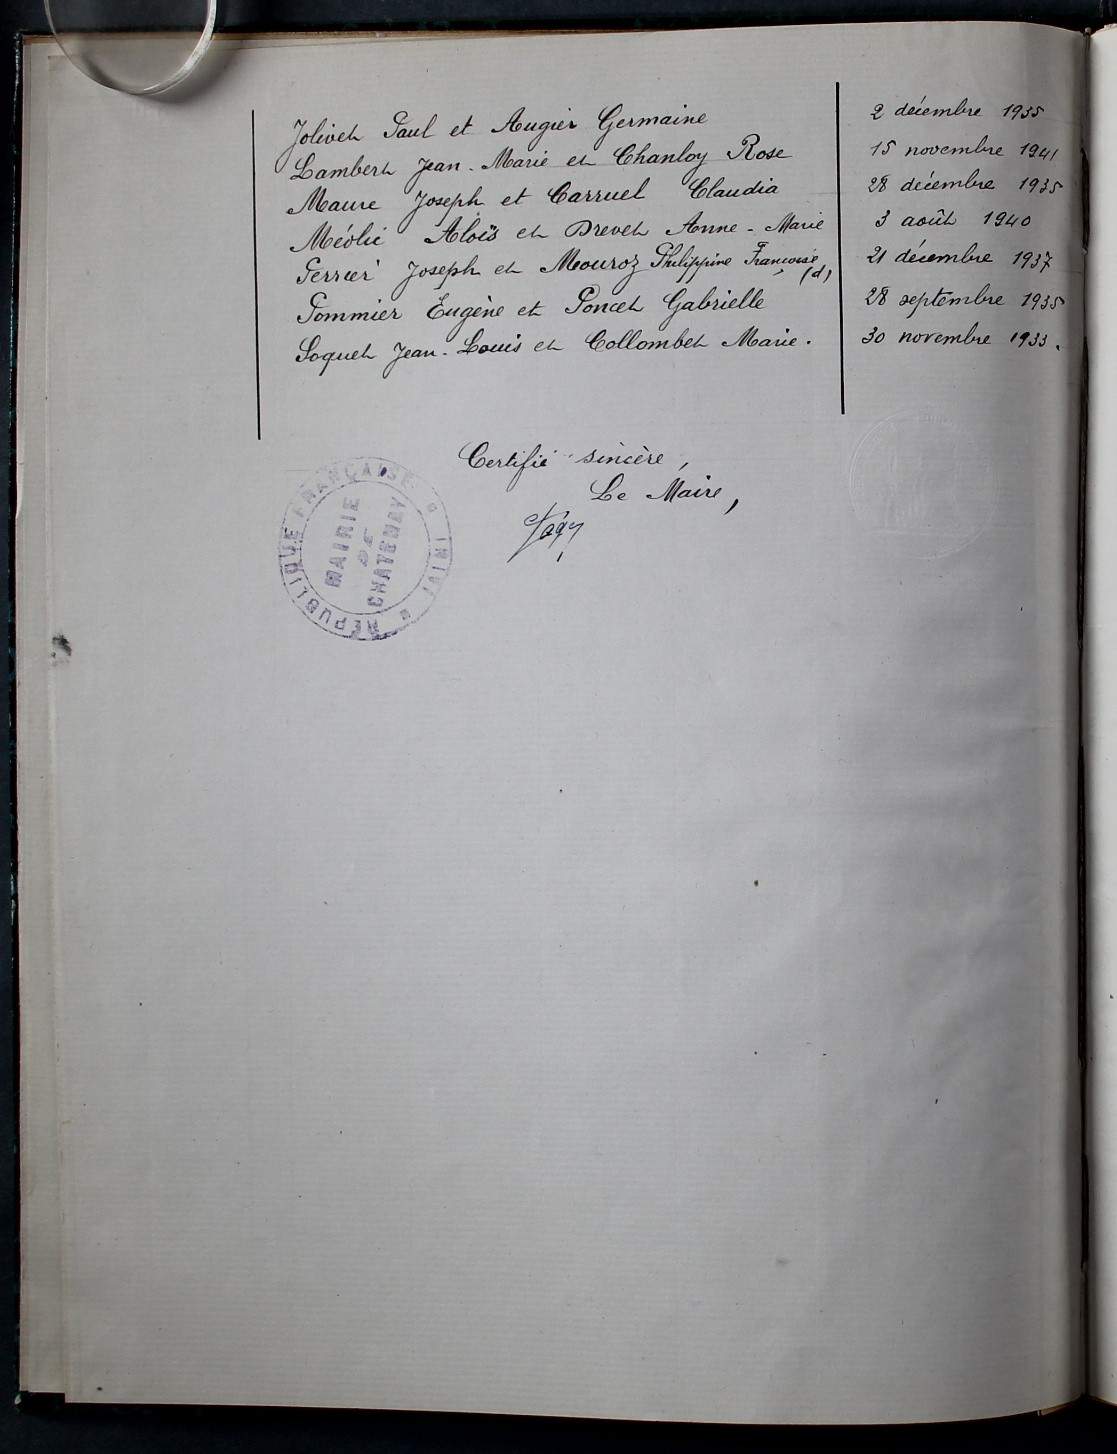 Jolivet Paul et Augier Germaine 2 décembre 1935
Lambert Jean-Marie et Chanloy Rose 15 novembre 1941
Maure Joseph et Carruel Claudia 28 décembre 1935
Méolic Aloïs et Drevet Anne-Marie 3 août 1940
Perrier Joseph et Mouroz Philippine Françoise (d) 21 décembre 1937
Pommier Eugène et Poncet Gabrielle 28 septembre 1935
Soquet Jean-Louis et Collombet Marie. 30 novembre 1933.
Certifié sincère,
Le Maire,
RÉPUBLIQUE FRANÇAISE
MAIRIE
DE
CHATENAY